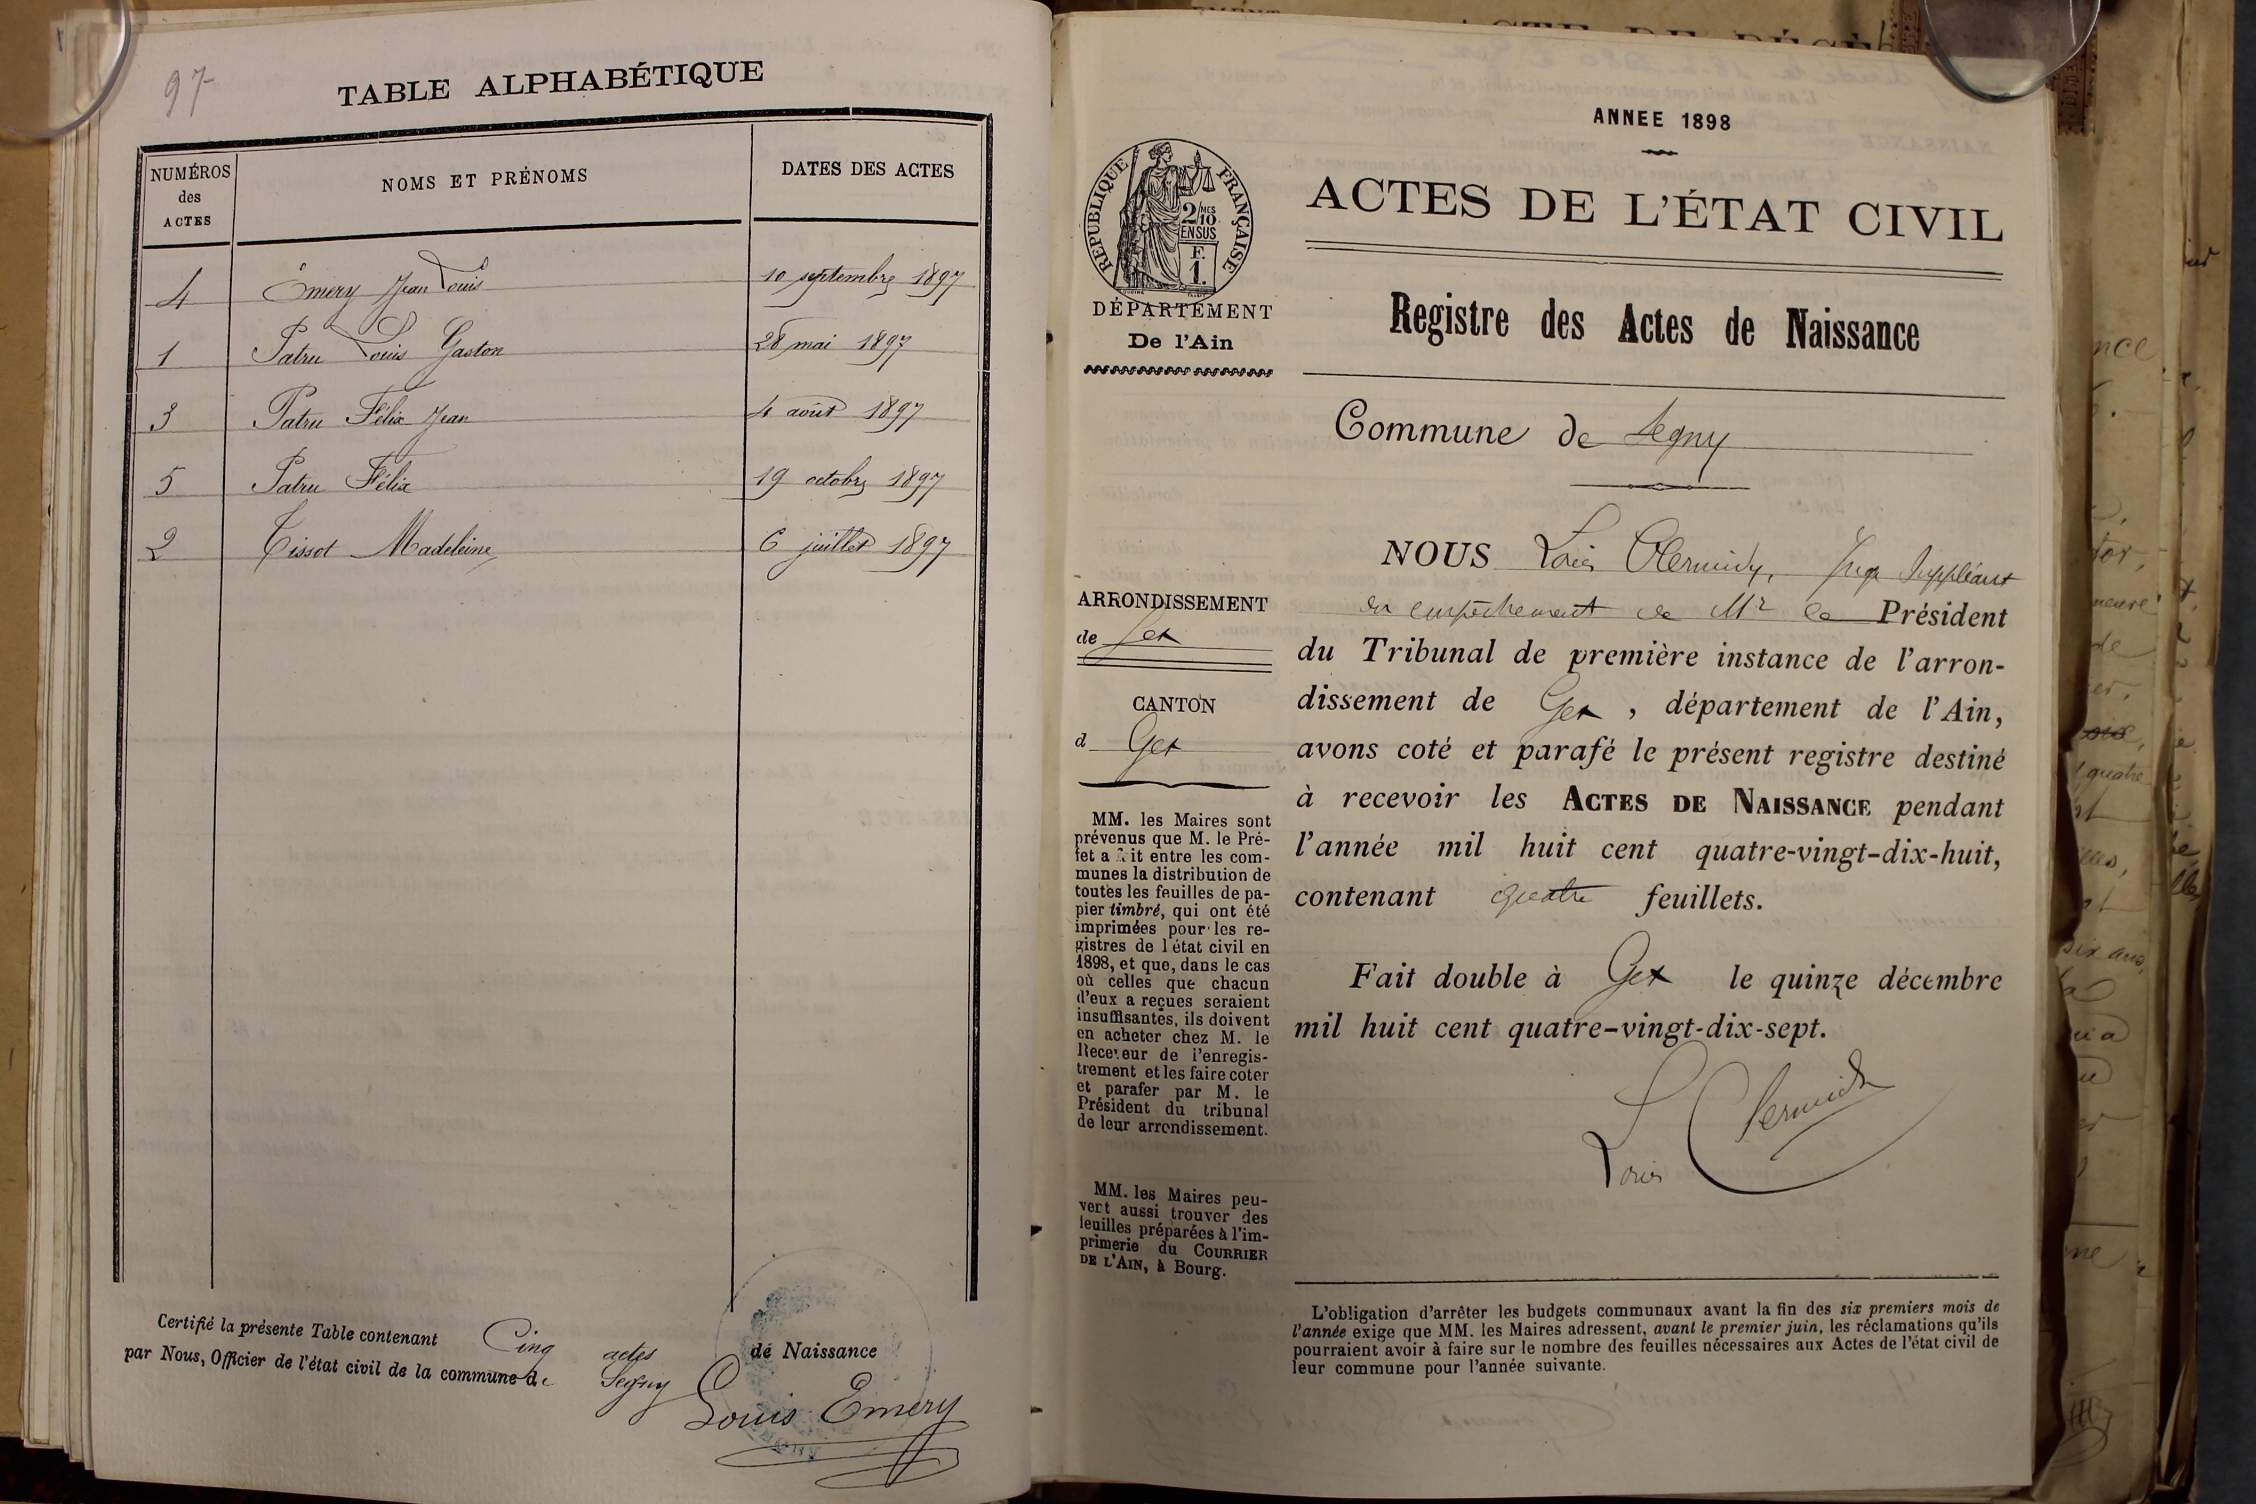 97
TABLE ALPHABÉTIQUE
NUMÉROS
des
ACTES
NOMS ET PRÉNOMS
DATES DES ACTES
4 Émery Jean Louis 10 septembre 1897
1 Patru Louis Gaston 28 mai 1897
3 Patru Félix Jean 4 août 1897
5 Patru Félix 19 octobre 1897
2 Tissot Madeleine 6 juillet 1897
Certifié la présente Table contenant Cinq actes de Naissance
par Nous, Officier de l'état civil de la commune de Segny
Louis Emery
ANNEE 1898
RÉPUBLIQUE FRANÇAISE
2/10 MES
EN SUS
F.
1.
DÉPARTEMENT
De l'Ain
ACTES DE L'ÉTAT CIVIL
Registre des Actes de Naissance
Commune de Segny
ARRONDISSEMENT
de Gex
CANTON
d Gex
MM. les Maires sont
prévenus que M. le Pré-
fet a fait entre les com-
munes la distribution de
toutes les feuilles de pa-
pier timbré, qui ont été
imprimées pour les re-
gistres de l'état civil en
1898, et que, dans le cas
où celles que chacun
d'eux a reçues seraient
insuffisantes, ils doivent
en acheter chez M. le
Receveur de l'enregis-
trement et les faire coter
et parafer par M. le
Président du tribunal
de leur arrondissement.
MM. les Maires peu-
vent aussi trouver des
feuilles préparées à l'im-
primerie du COURRIER
DE L'AIN, à Bourg.
NOUS Louis Clermidy, Juge Suppléant
en empêchement de Mr le Président
du Tribunal de première instance de l'arron-
dissement de Gex, département de l'Ain,
avons coté et parafé le présent registre destiné
à recevoir les ACTES DE NAISSANCE pendant
l'année mil huit cent quatre-vingt-dix-huit,
contenant quatre feuillets.
Fait double à Gex le quinze décembre
mil huit cent quatre-vingt-dix-sept.
Louis Clermidy
L'obligation d'arrêter les budgets communaux avant la fin des six premiers mois de
l'année exige que MM. les Maires adressent, avant le premier juin, les réclamations qu'ils
pourraient avoir à faire sur le nombre des feuilles nécessaires aux Actes de l'état civil de
leur commune pour l'année suivante.